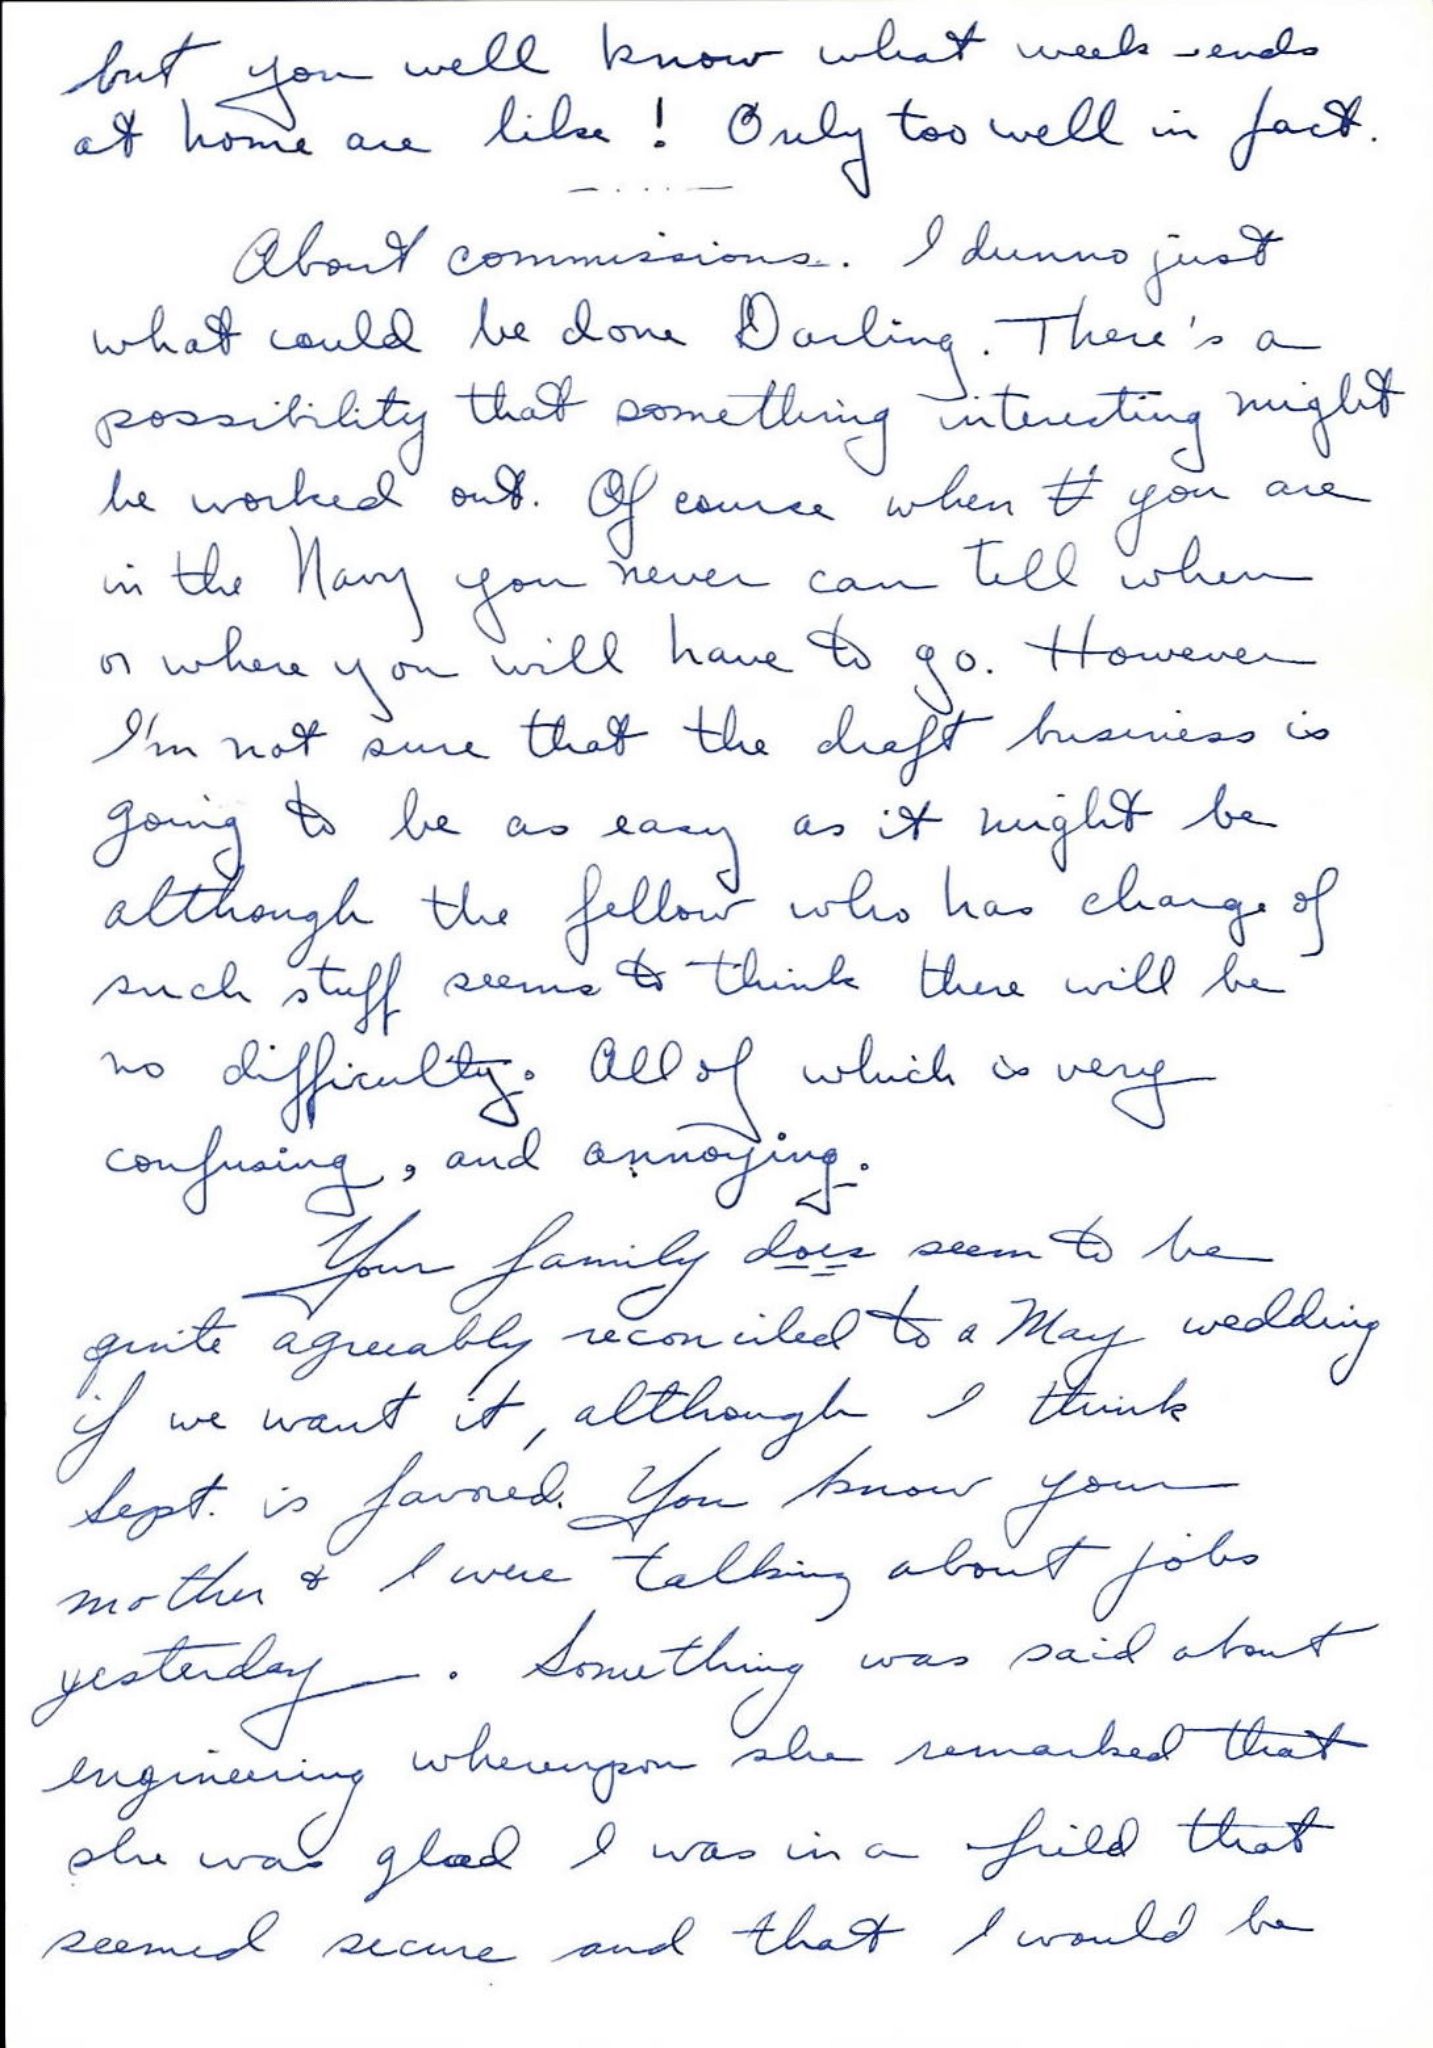 but you well know what week-ends
at home are like! Only too well in fact.
— . . . . —
About commissions. I dunno just
what could be done Darling. There's a
possibility that something interesting might
be worked out. Of course when you are
in the Navy you never can tell when
or where you will have to go. However
I'm not sure that the draft business is
going to be as easy as it might be
although the fellow who has charge of
such stuff seems to think there will be
no difficulty. All of which is very
confusing, and annoying.
Your family does seem to be
quite agreeably reconciled to a May wedding
if we want it, although I think
Sept. is favored. You know your
mother & I were talking about jobs
yesterday. Something was said about
engineering whereupon she remarked that
she was glad I was in a field that
seemed secure and that I would be